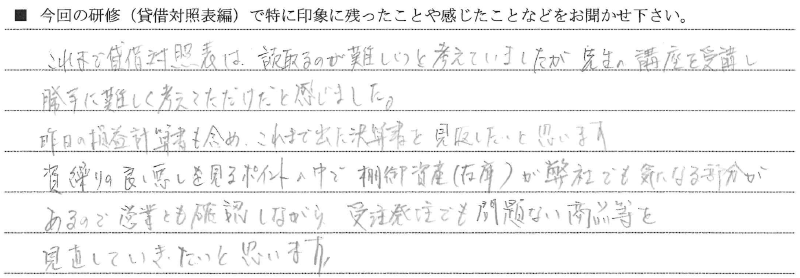 ■ 今回の研修（貸借対照表編）で特に印象に残ったことや感じたことなどをお聞かせ下さい。
これまで貸借対照表は、読取るのが難しいと考えていましたが先生の講座を受講し
勝手に難しく考えてただけだと感じました。
昨日の損益計算書も含め、これまで出た決算書を見返したいと思います
資繰りの良し悪しを見るポイントの中で棚卸資産(在庫)が弊社でも気になる部分が
あるので営業とも確認しながら受注発注でも問題ない商品等を
見直していきたいと思います。